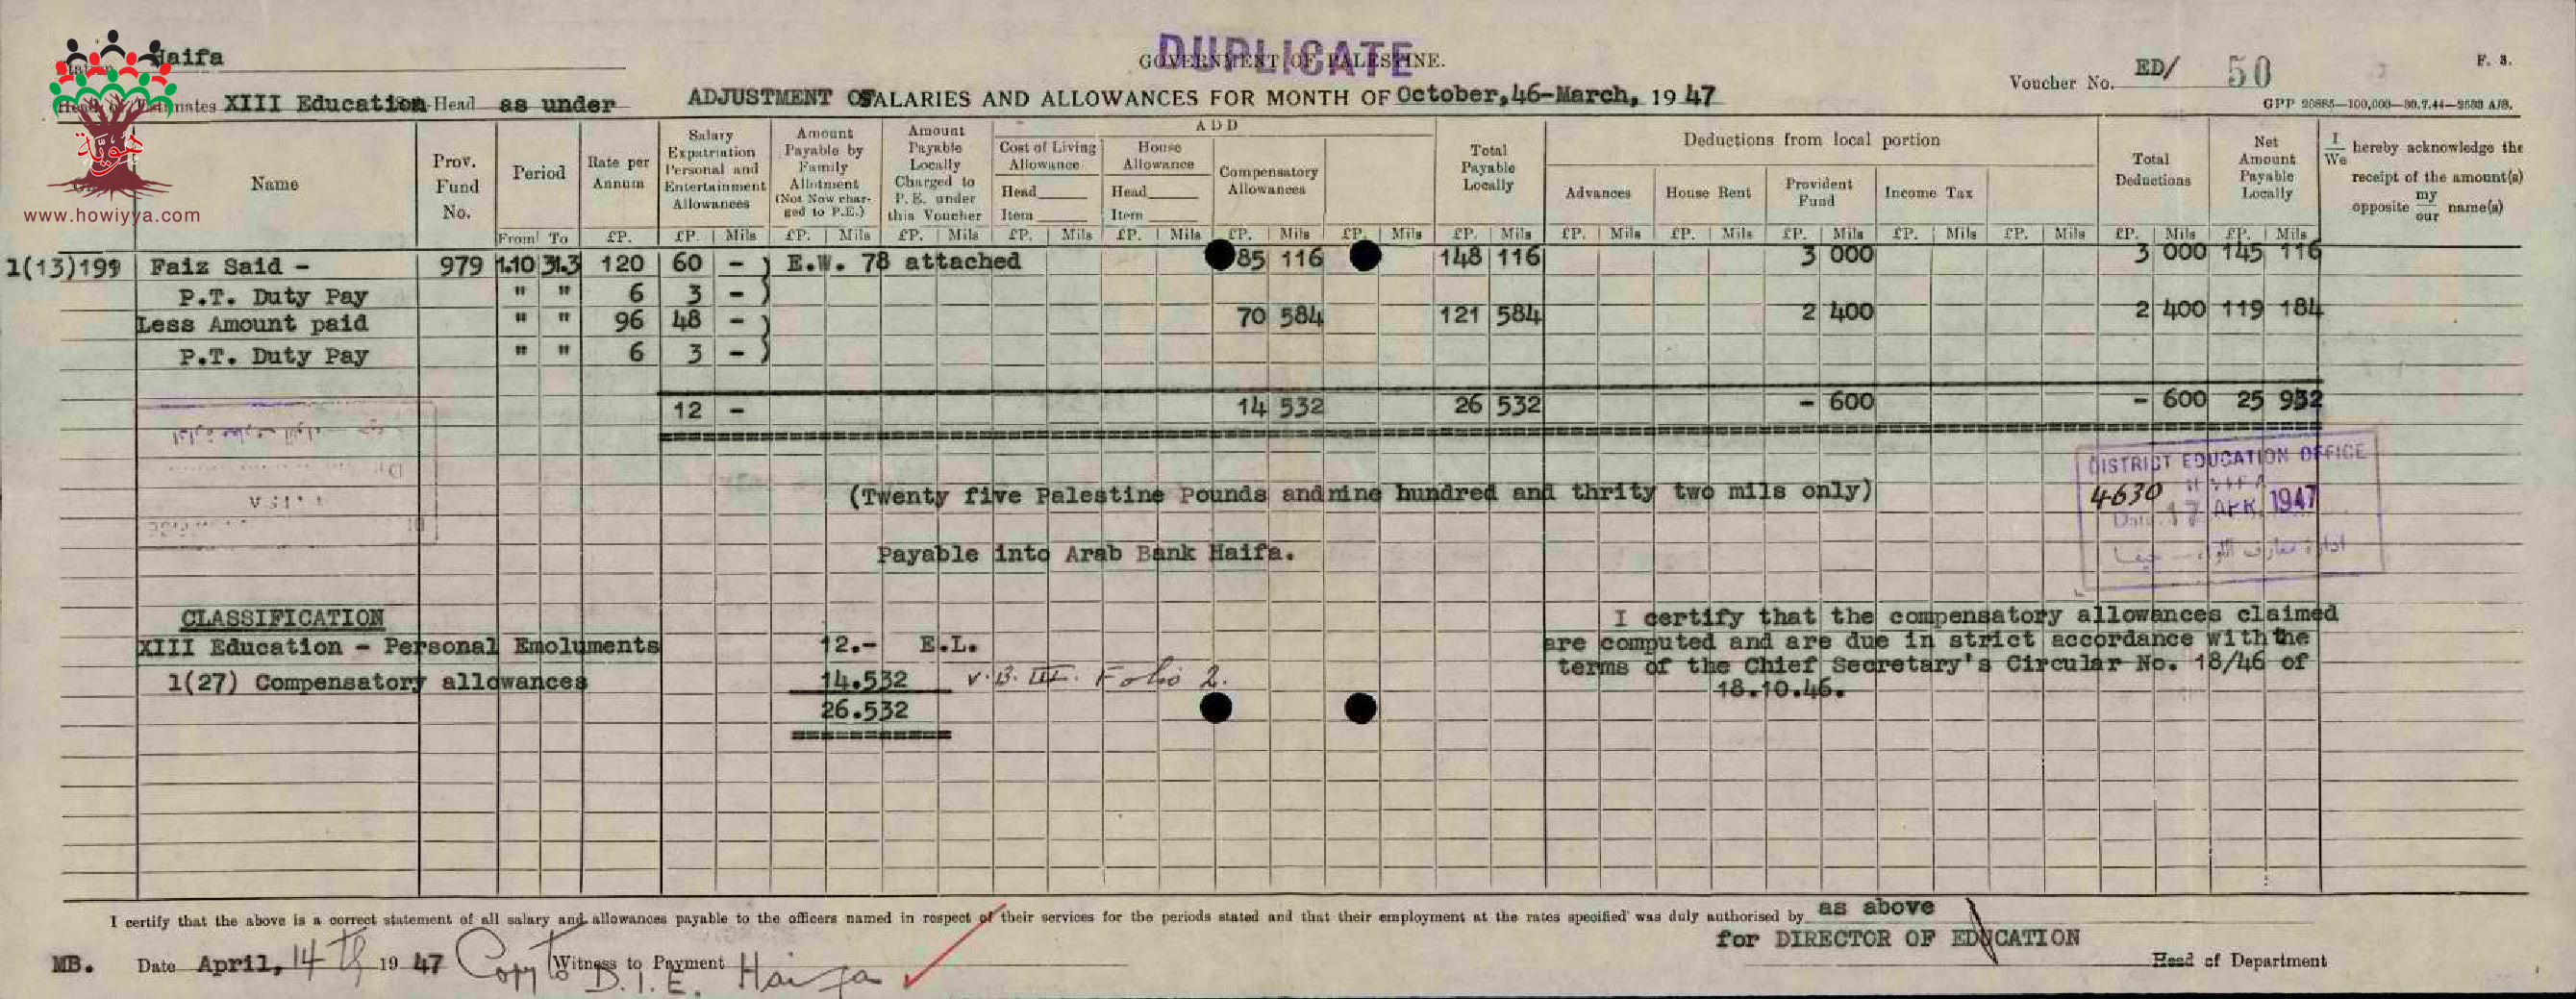 DUPLICATE
Haifa
GOVERNMENT OF PALESTINE.
F. 3.
Voucher No. ED/ 50
Estimates XIII Education Head as under
ADJUSTMENT OF SALARIES AND ALLOWANCES FOR MONTH OF October,46-March, 1947
GPP 20885—100,000—30.7.44—2533 A/B.
هوية
www.howiyya.com
Name
Prov. Fund No.
Period
From To
Rate per Annum
£P.
Salary Expatriation Personal and Entertainment Allowances
£P. Mils
Amount Payable by Family Allotment (Not Now charged to P.E.)
£P. Mils
Amount Payable Locally Charged to P.E. under this Voucher
£P. Mils
ADD
Cost of Living Allowance
Head
Item
£P. Mils
House Allowance
Head
Item
£P. Mils
Compensatory Allowances
£P. Mils
£P. Mils
Total Payable Locally
£P. Mils
Deductions from local portion
Advances
£P. Mils
House Rent
£P. Mils
Provident Fund
£P. Mils
Income Tax
£P. Mils
£P. Mils
Total Deductions
£P. Mils
Net Amount Payable Locally
£P. Mils
I We hereby acknowledge the
receipt of the amount(s)
opposite my our name(s)
1(13)199 Faiz Said - 979 1.10 31.3 120 60 - E.W. 78 attached 85 116 148 116 3 000 3 000 145 116
P.T. Duty Pay " " 6 3 -
Less Amount paid " " 96 48 - 70 584 121 584 2 400 2 400 119 184
P.T. Duty Pay " " 6 3 -
12 - 14 532 26 532 - 600 - 600 25 932
DISTRICT EDUCATION OFFICE
(Twenty five Palestine Pounds and nine hundred and thrity two mils only)
4630
Date 17 APR 1947
ادارة معارف اللواء - حيفا
Payable into Arab Bank Haifa.
CLASSIFICATION
XIII Education - Personal Emoluments 12.- E.L.
1(27) Compensatory allowances 14.532 V.B. III. Folio 2.
26.532
I certify that the compensatory allowances claimed
are computed and are due in strict accordance with the
terms of the Chief Secretary's Circular No. 18/46 of
18.10.46.
I certify that the above is a correct statement of all salary and allowances payable to the officers named in respect of their services for the periods stated and that their employment at the rates specified was duly authorised by as above
for DIRECTOR OF EDUCATION
MB. Date April, 14th 1947 Witness to Payment
Copy to D.I.E. Haifa
Head of Department